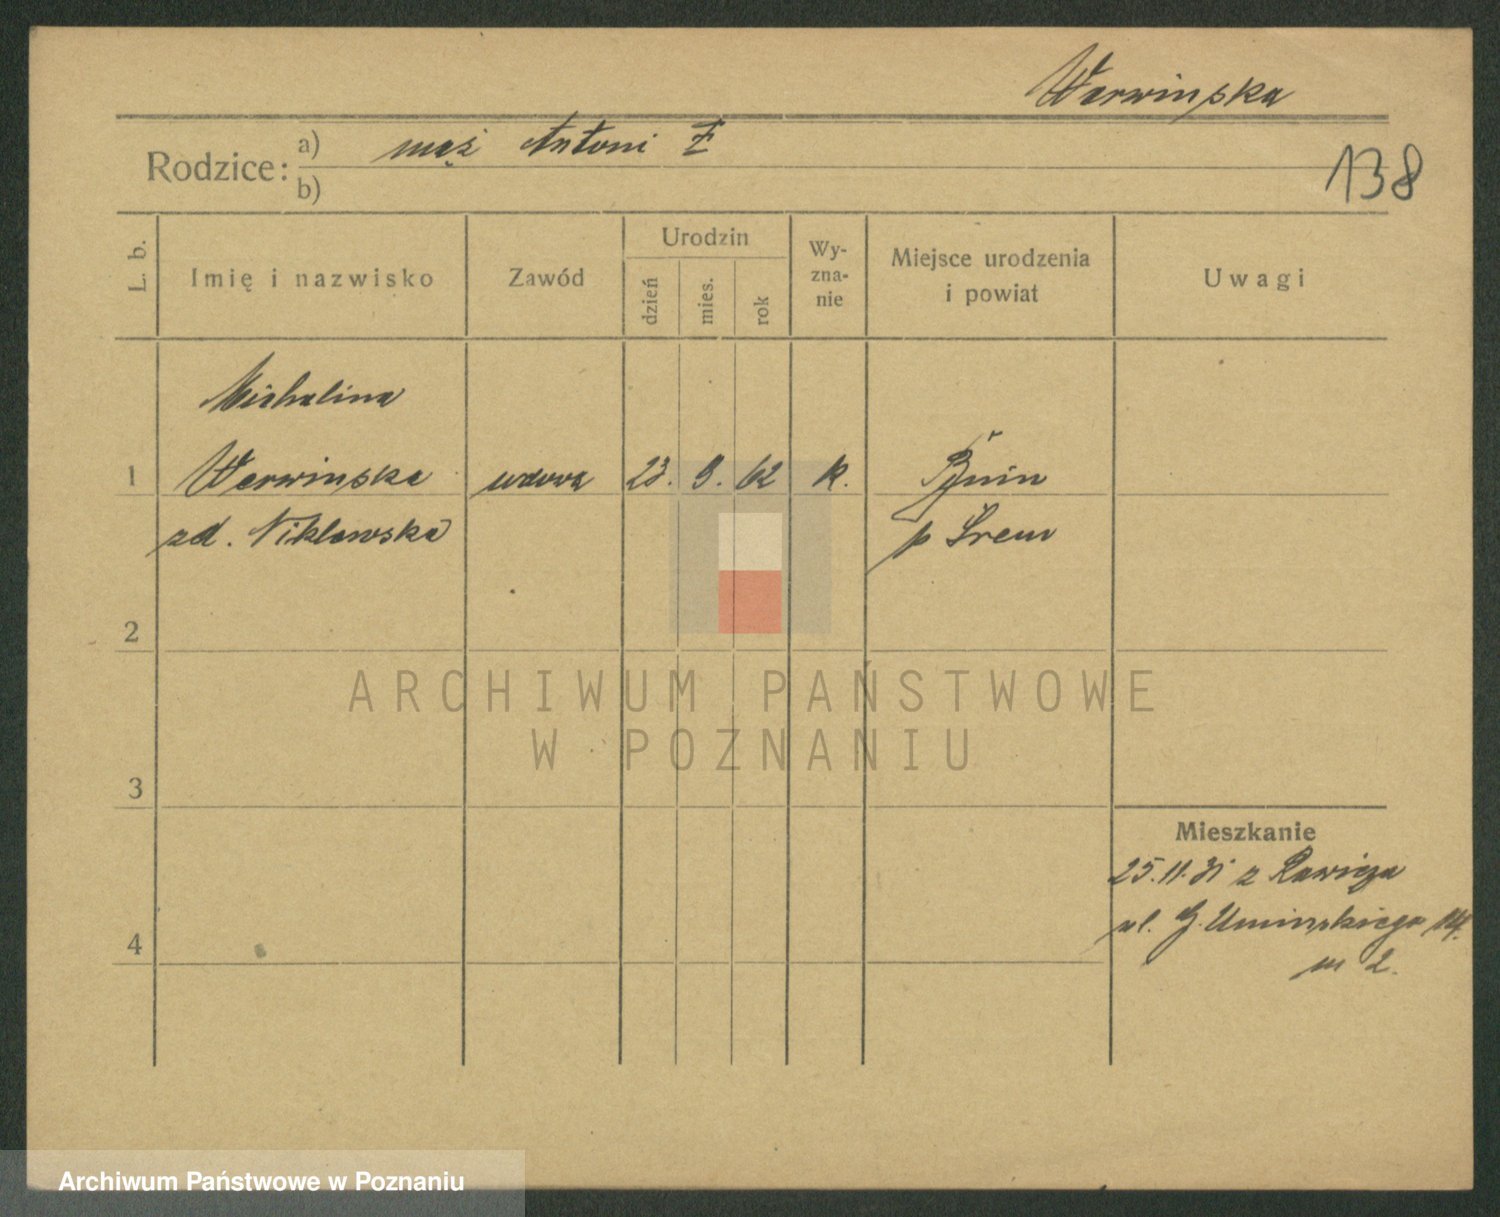 Werwinska
Rodzice: a) mąż Antoni Ƶ
b)
138
L. b.
Imię i nazwisko
Zawód
Urodzin
dzień
mies.
rok
Wy-
zna-
nie
Miejsce urodzenia
i powiat
Uwagi
Michalina
1 Werwinska wdowa 23. 9. 62 k. Bnin
zd. Niklewska p Śrem
2
ARCHIWUM PAŃSTWOWE
W POZNANIU
3
Mieszkanie
25.11.31 z Rawicza
ul. G. Uminskiego 14.
m 2.
4
Archiwum Państwowe w Poznaniu